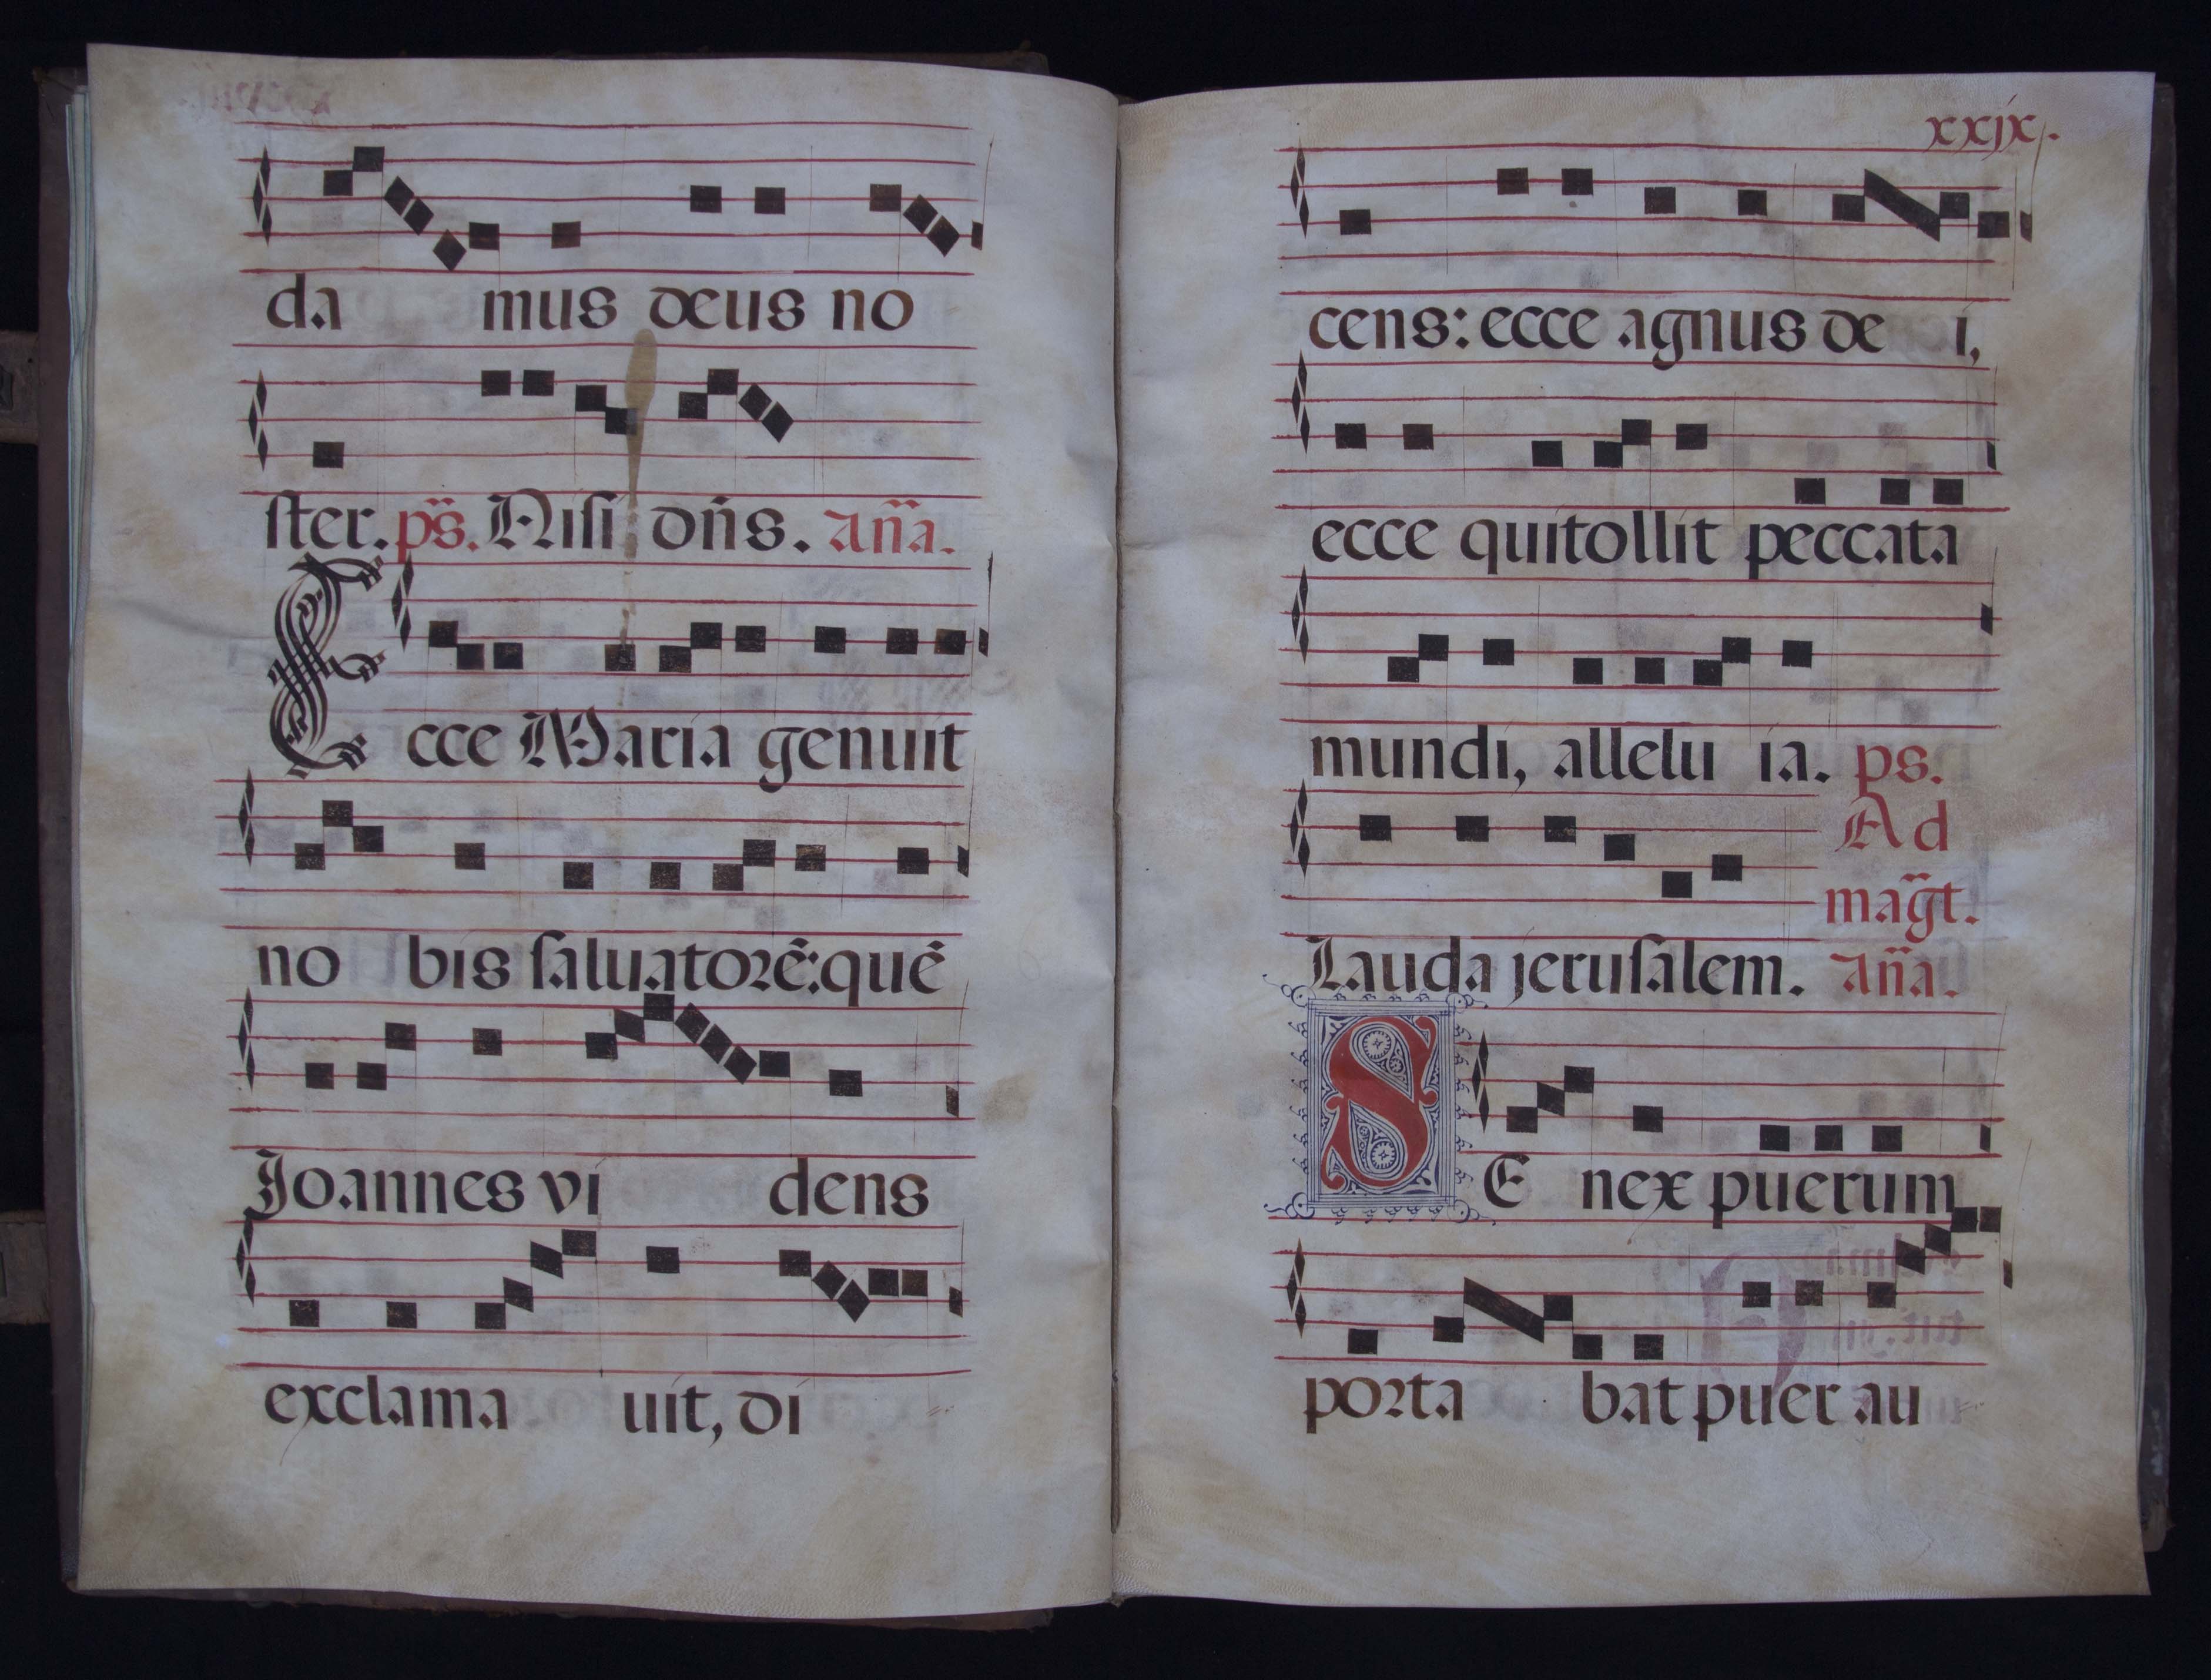 da mus deus no
ster. ps̃. Nisi dñs. Añа.
Ecce Maria genuit
no bis saluatorẽ: quẽ
Joannes vi dens
exclama uit, di
xxjx.
cens: ecce agnus de i,
ecce qui tollit peccata
mundi, allelu ia. ps.
Ad
mag̃t.
Lauda jerusalem. Aña.
SE nex puerum
porta bat puer au